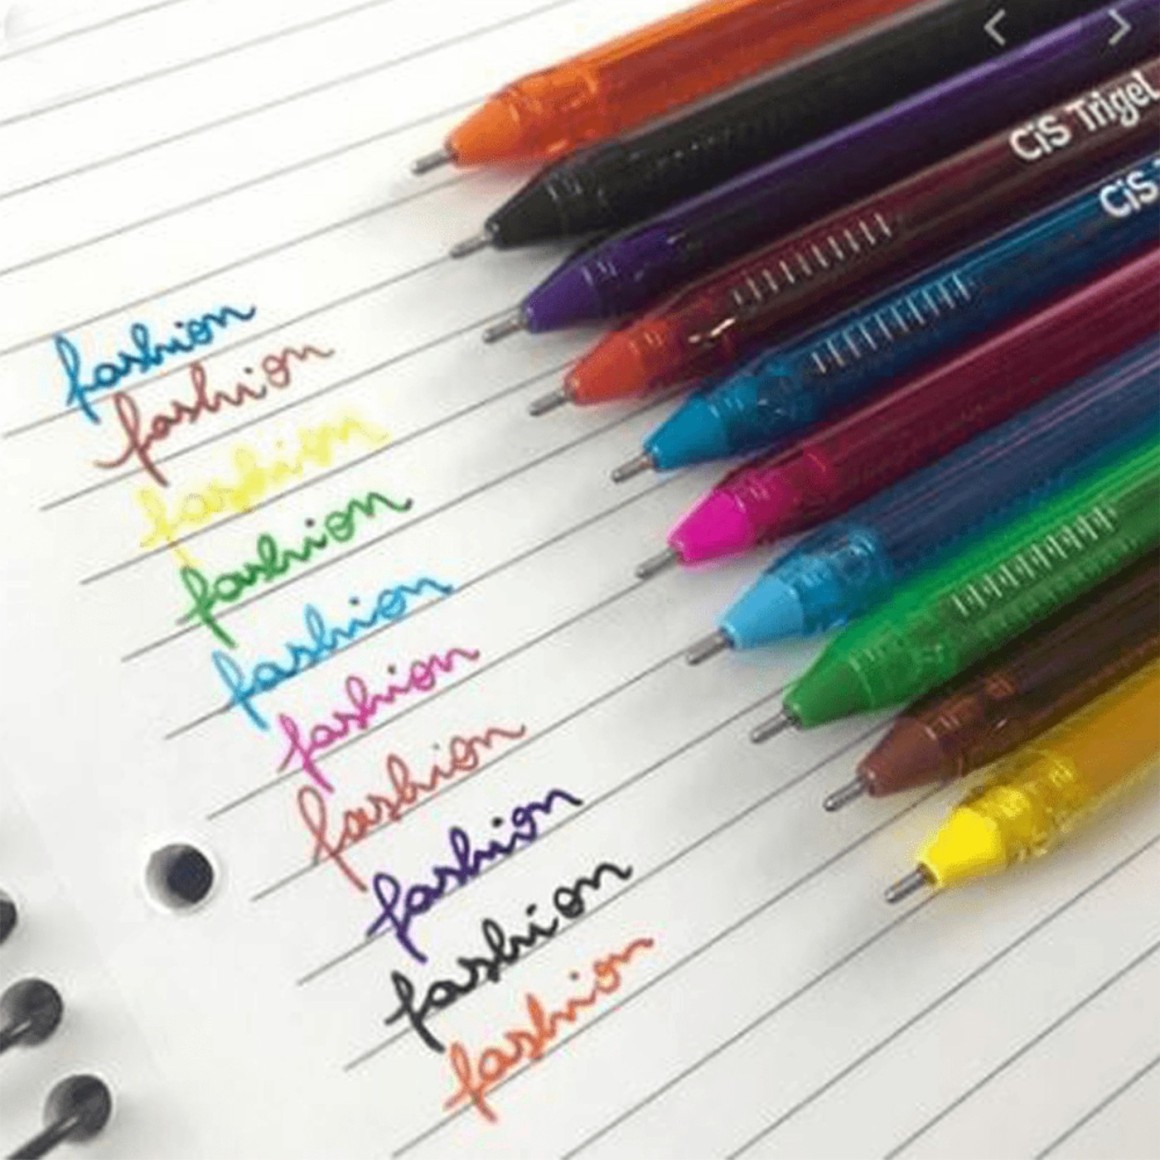 CiS Trigel
CiS
fashion
fashion
fashion
fashion
fashion
fashion
fashion
fashion
fashion
fashion